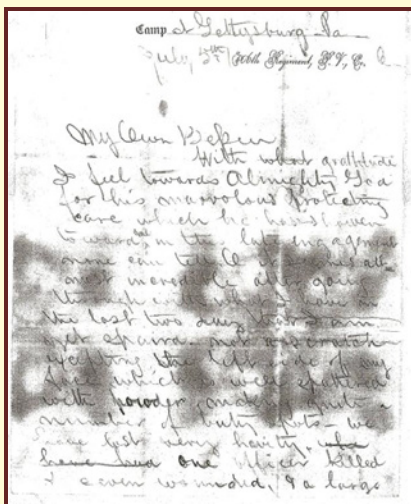 Camp at Gettysburg Pa
July 5th 106th Regiment, P. V., Co.
My Own
With what gratitude
I feel towards Almighty God
for this marvolous protecting
care which he has
toward in the late engagement
none can tell
most incredible after going
through with what I have in
the last two days that I am
yet spared not a scratch
excepting the left side of my
face which is well spattered
with powder making quite a
number of
have lost very
have had one officer killed
& seven wounded, & a large